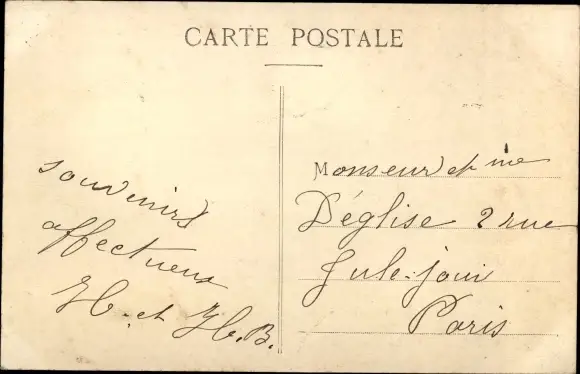 CARTE POSTALE
souvenirs
affectueux
H. et H. B.
Monsieur et me
Déglise 2 rue
Jule-joui
Paris